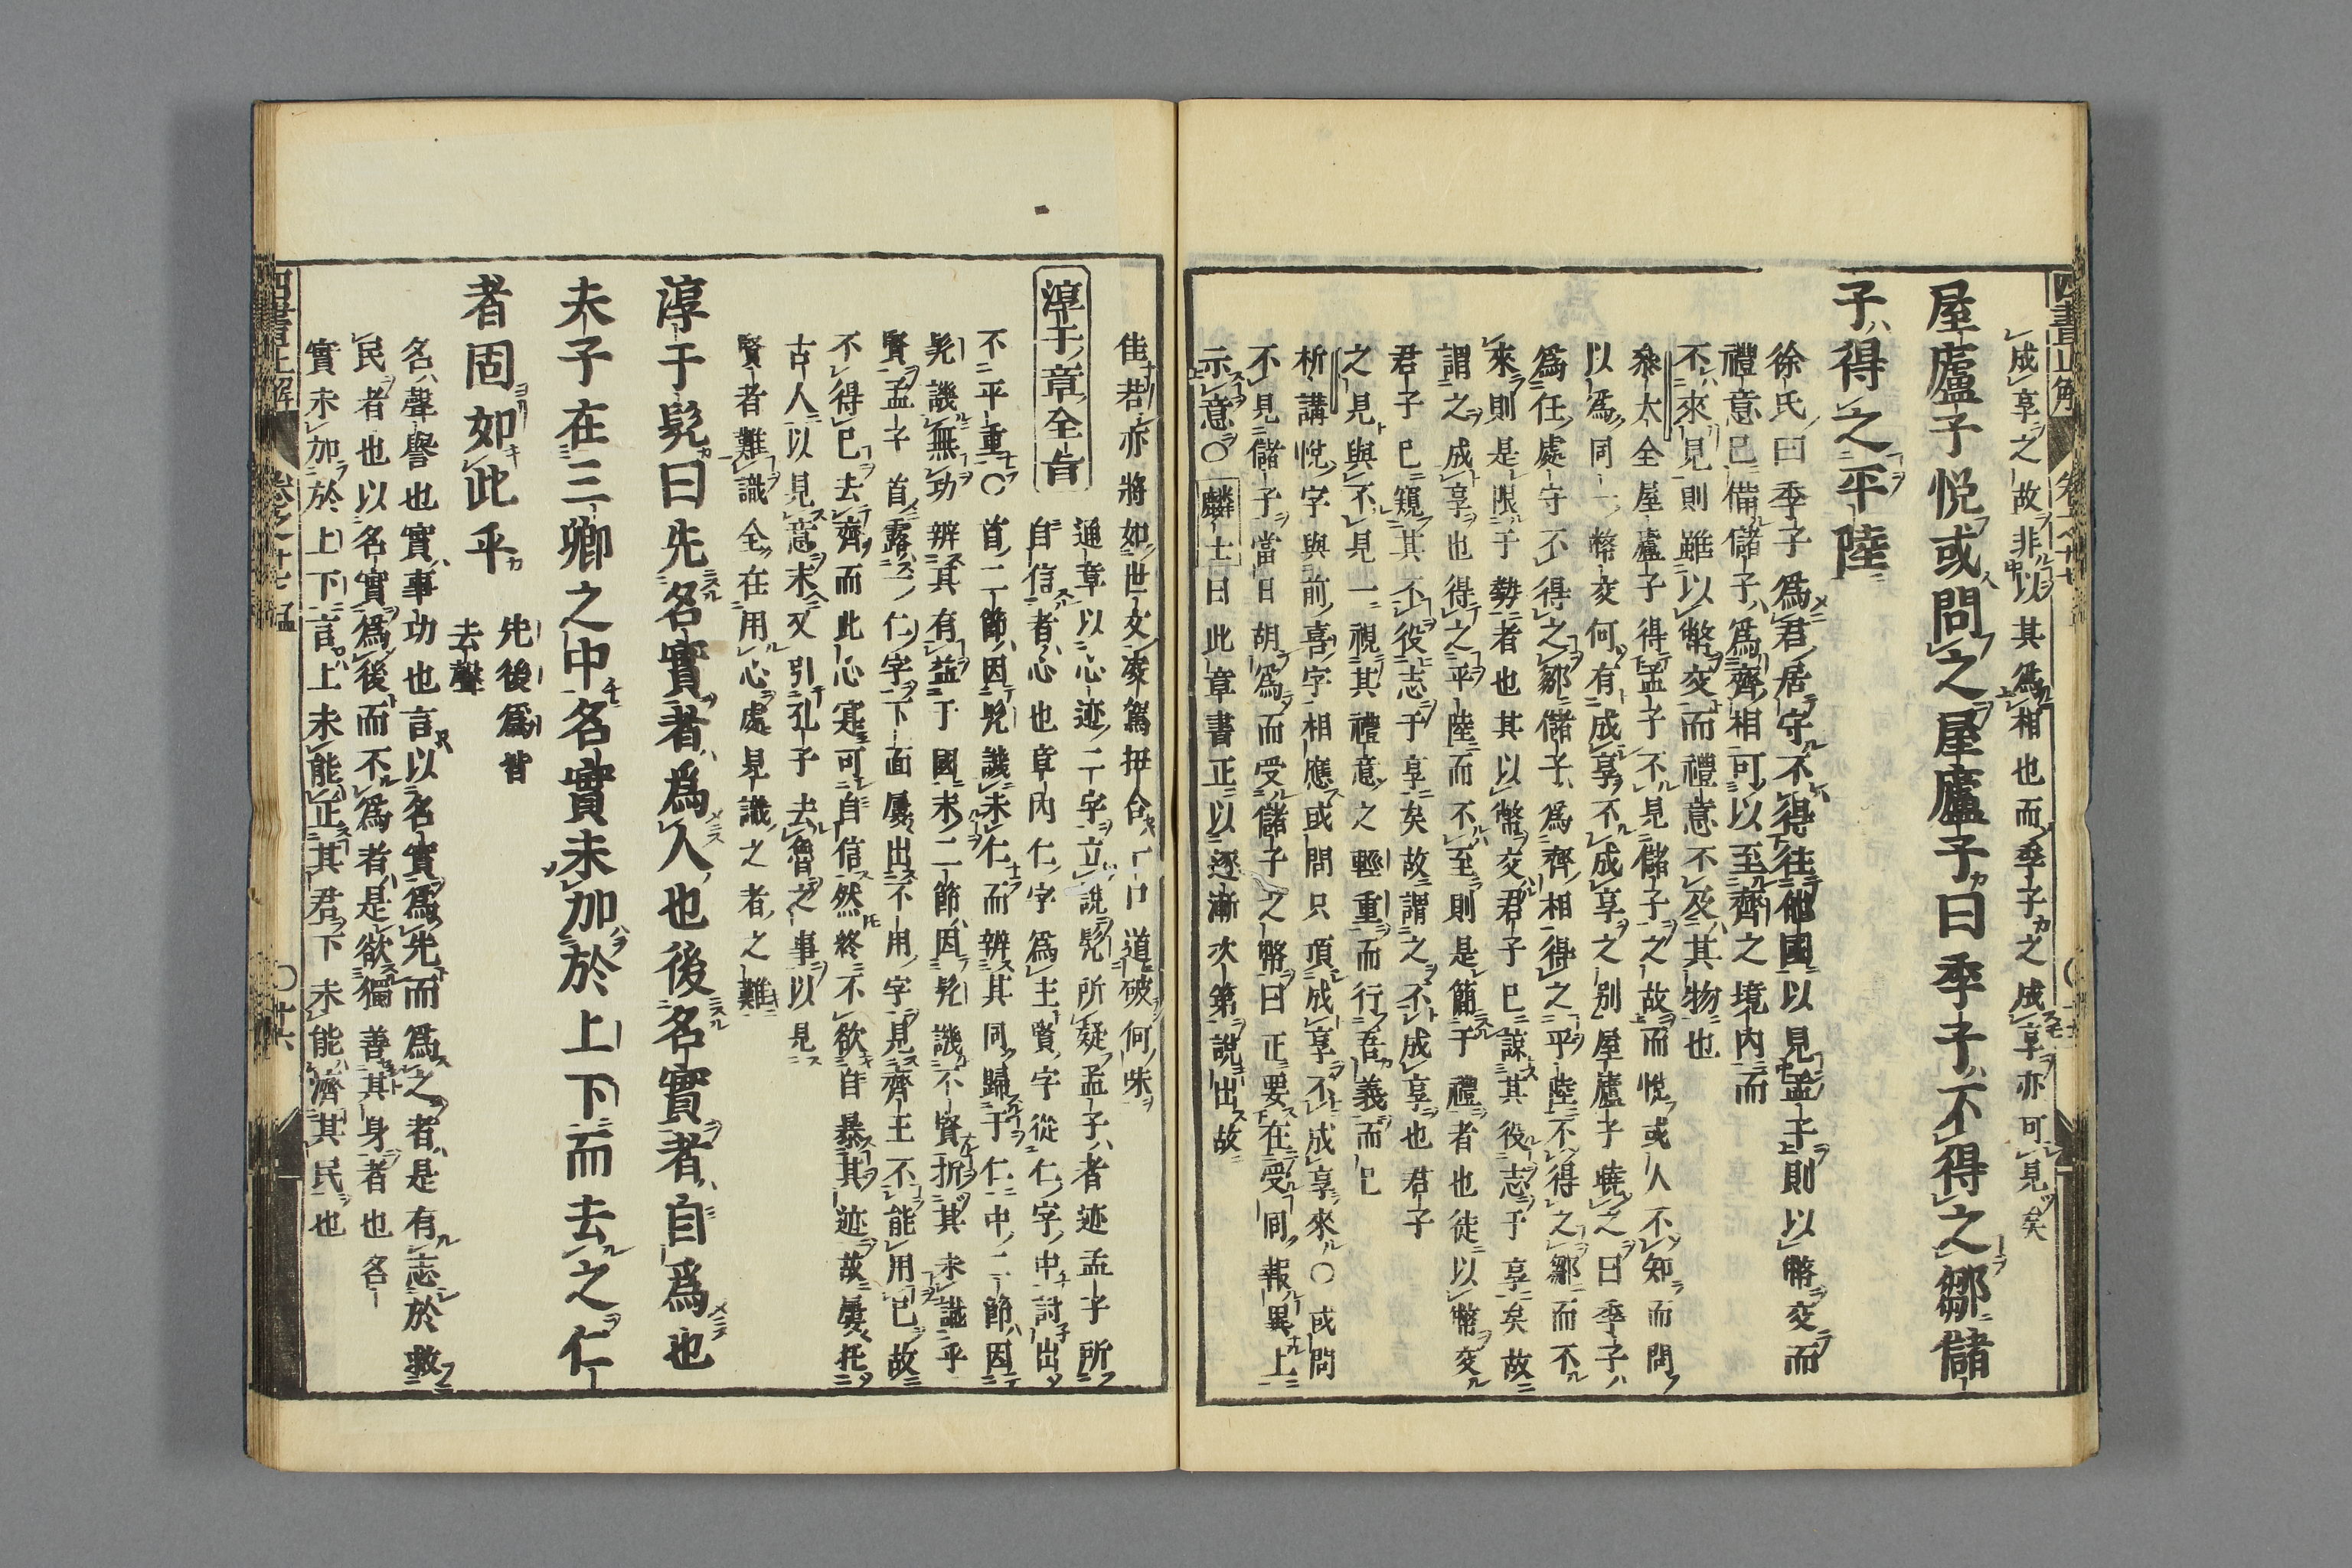 成享之故非以其為相也而季子之成享亦可見矣
屋廬子悅或問之屋廬子曰季子不得之鄒儲
子得之平陸
徐氏曰季子為君居守不得往他國以見孟子則以幣交而
禮意已備儲子為齊相可以至齊之境內而
不來見則雖以幣交而禮意不及其物也
大全屋廬子得孟子不見儲子之故而悅或人不知而問
以為同一幣交何有成享不成享之別屋廬子曉之曰季子
為任處守不得之鄒儲子為齊相得之平陸不得之鄒而不
來則是限于勢者也其以幣交君子已諒其役志于享矣故
謂之成享也得之平陸而不至則是簡于禮者也徒以幣交
君子已窺其不役志于享矣故謂之不成享也君子
之見與不見一視其禮意之輕重而行吾義而已
析講悅字與前喜字相應或問只頂成享不成享來○或問
不見儲子當日胡為而受儲子之幣曰正要在受同報異上
示意○麟士曰此章書正以逐漸次第說出故
佳若亦將如世文凌駕扭合 口道破何味
淳于章全旨
通章以心迹二字立說髡所疑孟子者迹孟子所
自信者心也章內仁字為主賢字從仁字中討出
不平重○首二節因髡譏未仁而辨其同歸于仁中二節因
髡譏無功辨其有益于國末二節因髡譏不賢折其未識乎
賢孟子首露三仁字下面屢出不用字見齊王不能用已故
不得已去齊而此心寔可自信然終不欲自暴其迹故屢托
古人以見意末又引孔子去魯之事以見
賢者難識全在用心處見識之者之難
淳于髡曰先名實者為人也後名實者自為也
夫子在三卿之中名實未加於上下而去之仁
者固如此乎
先後為皆
去聲
名聲譽也實事功也言以名實為先而為之者是有志於救
民者也以名實為後而不為者是欲獨善其身者也名
實未加於上下言上未能正其君下未能濟其民也
四書正解
卷之十七 孟
○廿六